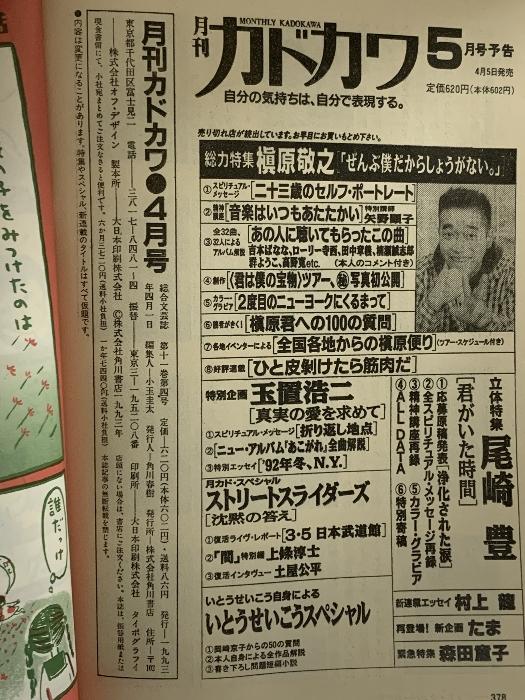 月刊
MONTHLY KADOKAWA
カドカワ
5月号予告
4月5日発売
定価620円(本体602円)
自分の気持ちは、自分で表現する。
売り切れ店が続出しています。お早目にお買いもとめ下さい。
総力特集 槇原敬之「ぜんぶ僕だからしょうがない。」
①スピリチュアル・メッセージ[二十三歳のセルフ・ポートレート]
②精神講座[音楽はいつもあたたかい]特別講師 矢野顕子
③全32曲、32人によるアルバム解説[あの人に聴いてもらったこの曲]
吉本ばなな、ローリー寺西、田中章義、槇原誠志郎
群ようこ、高野寛etc.(本人のコメント付き)
④創作《君は僕の宝物》ツアー、㊙写真初公開]
⑤カラー・グラビア[2度目のニューヨークにくるまって]
⑥読者がきく![槇原君への100の質問]
⑦各地イベンターによる[全国各地からの槇原便り](ツアー・スケジュール付き)
⑧好評連載[ひと皮剝けたら筋肉だ]
特別企画 玉置浩二
[真実の愛を求めて]
①スピリチュアル・メッセージ[折り返し地点]
②[ニュー・アルバム「あこがれ」全曲解説]
③特別エッセイ['92年冬、N.Y.]
月カド・スペシャル
ストリートスライダーズ
[沈黙の答え]
①復活ライヴ・レポート[3・5 日本武道館]
②「聞」特別編 上條淳士
③復活インタヴュー 土屋公平
いとうせいこう自身による
いとうせいこうスペシャル
①岡崎京子からの50の質問
②本人自身による全作品解説
③書き下ろし問題短編小説
立体特集 尾崎豊
[君がいた時間]
①応募原稿発表[浄化された涙]
②全スピリチュアル・メッセージ再録
③精神講座再録 ⑤カラー・グラビア
④ALL DATA ⑥特別寄稿
新連載エッセイ 村上龍
再登場!新企画 たま
緊急特集 森田童子
378
月刊カドカワ●4月号
総合文芸誌 第十一巻第四号 定価―六二〇円(本体六〇二円)・送料八六円 発行―一九九三
年四月一日 編集人―小玉圭太 発行人―角川春樹 発行所―株式会社角川書店 住所―〒102
東京都千代田区富士見二 電話―三八一七―八四八一―四 振替―東京三―一九五二〇八番 印刷所―大日本印刷株式会社 タイポグラフィ
―株式会社オフ・デザイン 製本所―大日本印刷株式会社 Ⓒ株式会社角川書店一九九三年
店頭にない場合は、書店にご注文ください。本誌は、振替用紙または
現金書留にて、小社宛まとめてご注文なさると便利です。六か月三七二〇円(送料小社負担)一か年七四四〇円(送料小社負担) 本誌記事の無断転載を禁じます。
●内容は変更になることがあります。特集やスペシャル、新連載のタイトルはすべて仮題です。
をみつけたのは
誰だっけ